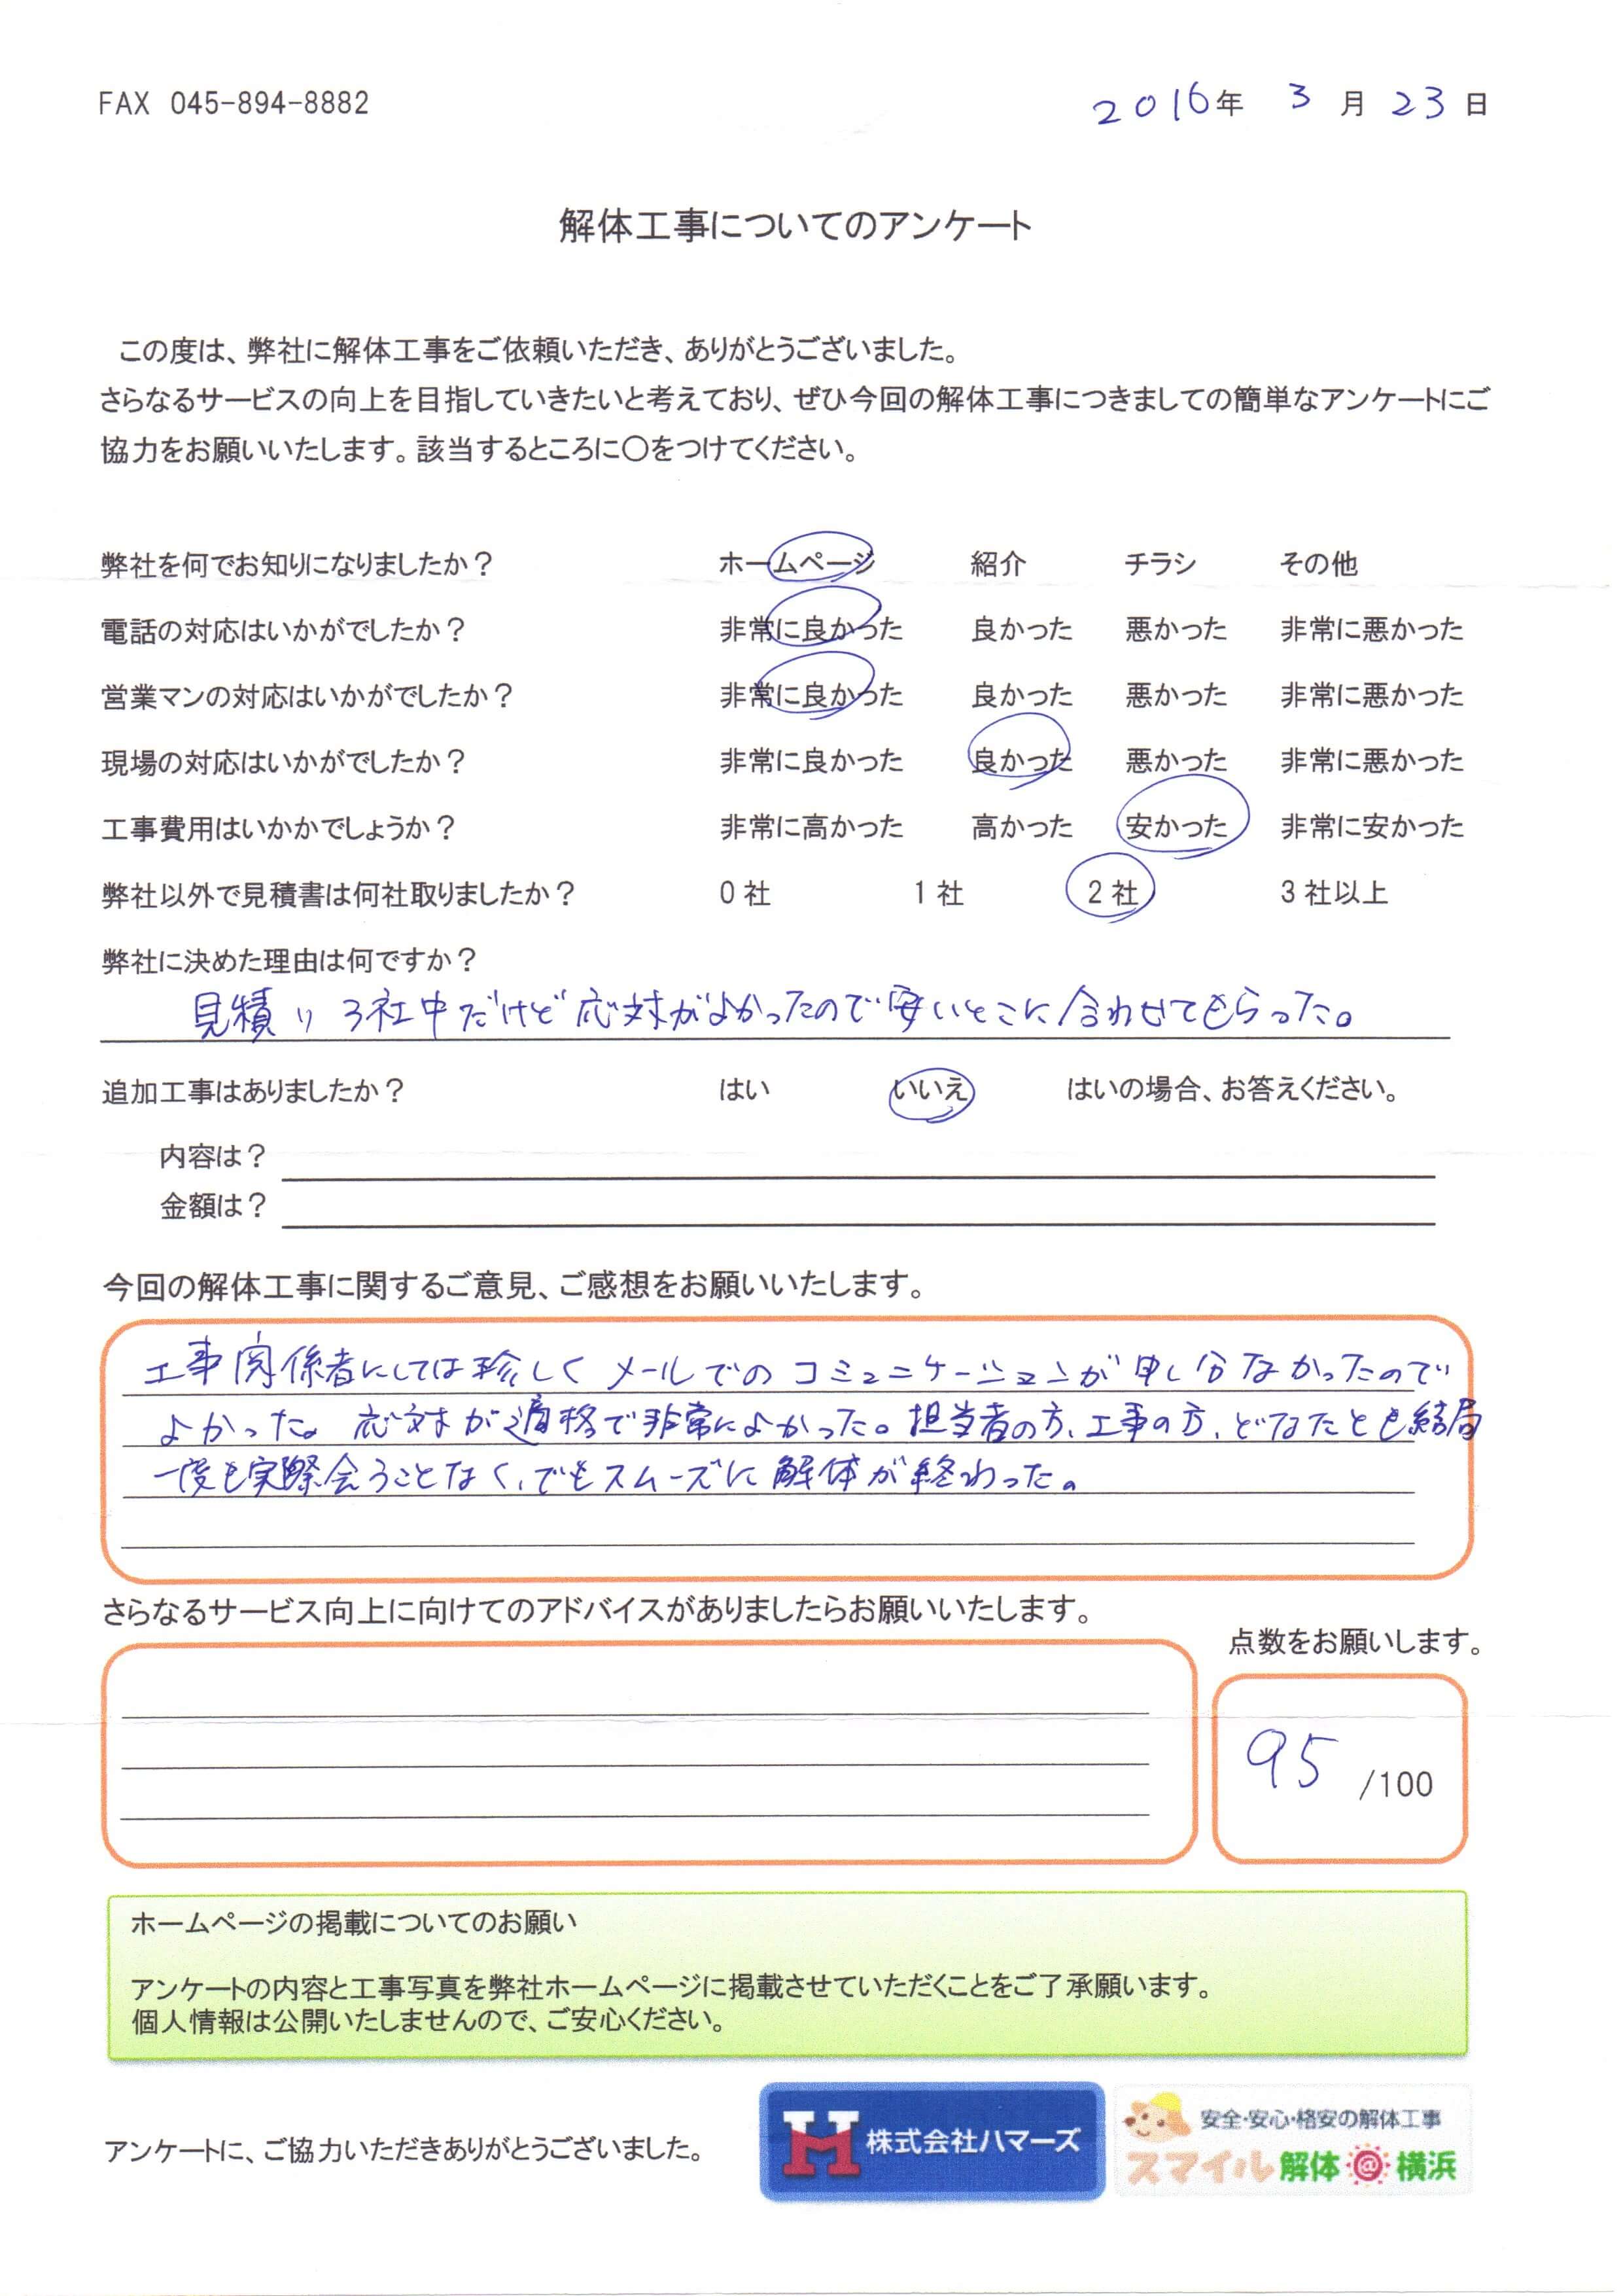 FAX 045-894-8882
2016年 3月 23日
解体工事についてのアンケート
この度は、弊社に解体工事をご依頼いただき、ありがとうございました。
さらなるサービスの向上を目指していきたいと考えており、ぜひ今回の解体工事につきましての簡単なアンケートにご
協力をお願いいたします。該当するところに〇をつけてください。
弊社を何でお知りになりましたか？ ホームページ 紹介 チラシ その他
電話の対応はいかがでしたか？ 非常に良かった 良かった 悪かった 非常に悪かった
営業マンの対応はいかがでしたか？ 非常に良かった 良かった 悪かった 非常に悪かった
現場の対応はいかがでしたか？ 非常に良かった 良かった 悪かった 非常に悪かった
工事費用はいかかでしょうか？ 非常に高かった 高かった 安かった 非常に安かった
弊社以外で見積書は何社取りましたか？ 0社 1社 2社 3社以上
弊社に決めた理由は何ですか？
見積り 3社中だけど応対がよかったので安いとこに合わせてもらった。
追加工事はありましたか？ はい いいえ はいの場合、お答えください。
内容は？
金額は？
今回の解体工事に関するご意見、ご感想をお願いいたします。
工事関係者にしては珍しくメールでのコミュニケーションが申し分なかったので
よかった。応対が適格で非常によかった。担当者の方、工事の方、どなたとも結局
一度も実際会うことなく、でもスムーズに解体が終わった。
さらなるサービス向上に向けてのアドバイスがありましたらお願いいたします。
点数をお願いします。
95 /100
ホームページの掲載についてのお願い
アンケートの内容と工事写真を弊社ホームページに掲載させていただくことをご了承願います。
個人情報は公開いたしませんので、ご安心ください。
アンケートに、ご協力いただきありがとうございました。
H 株式会社ハマーズ
安全・安心・格安の解体工事
スマイル解体@横浜